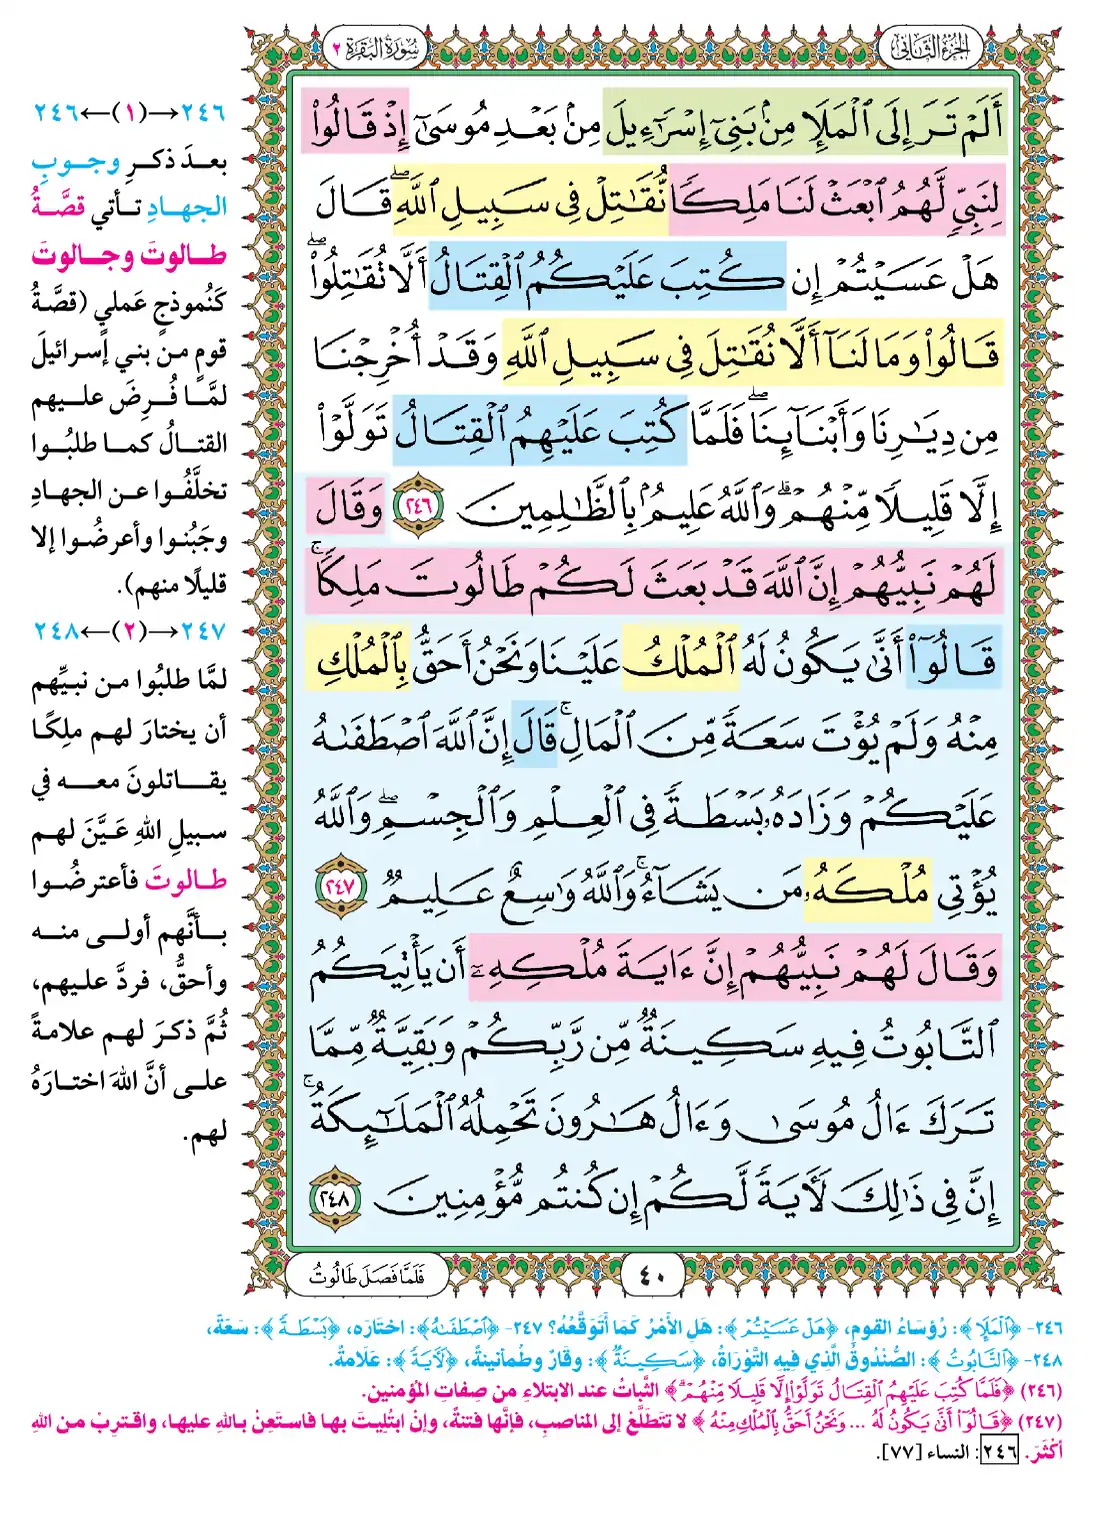 الجزء الثاني
سورة البقرة ٢
أَلَمْ تَرَ إِلَى ٱلْمَلَإِ مِنۢ بَنِىٓ إِسْرَٰٓءِيلَ مِنۢ بَعْدِ مُوسَىٰٓ إِذْ قَالُوا۟
لِنَبِىٍّ لَّهُمُ ٱبْعَثْ لَنَا مَلِكًا نُّقَٰتِلْ فِى سَبِيلِ ٱللَّهِ ۖ قَالَ
هَلْ عَسَيْتُمْ إِن كُتِبَ عَلَيْكُمُ ٱلْقِتَالُ أَلَّا تُقَٰتِلُوا۟ ۖ
قَالُوا۟ وَمَا لَنَآ أَلَّا نُقَٰتِلَ فِى سَبِيلِ ٱللَّهِ وَقَدْ أُخْرِجْنَا
مِن دِيَٰرِنَا وَأَبْنَآئِنَا ۖ فَلَمَّا كُتِبَ عَلَيْهِمُ ٱلْقِتَالُ تَوَلَّوْا۟
إِلَّا قَلِيلًا مِّنْهُمْ ۗ وَٱللَّهُ عَلِيمٌۢ بِٱلظَّٰلِمِينَ ٢٤٦ وَقَالَ
لَهُمْ نَبِيُّهُمْ إِنَّ ٱللَّهَ قَدْ بَعَثَ لَكُمْ طَالُوتَ مَلِكًا ۚ
قَالُوٓا۟ أَنَّىٰ يَكُونُ لَهُ ٱلْمُلْكُ عَلَيْنَا وَنَحْنُ أَحَقُّ بِٱلْمُلْكِ
مِنْهُ وَلَمْ يُؤْتَ سَعَةً مِّنَ ٱلْمَالِ ۚ قَالَ إِنَّ ٱللَّهَ ٱصْطَفَىٰهُ
عَلَيْكُمْ وَزَادَهُۥ بَسْطَةً فِى ٱلْعِلْمِ وَٱلْجِسْمِ ۖ وَٱللَّهُ
يُؤْتِى مُلْكَهُۥ مَن يَشَآءُ ۚ وَٱللَّهُ وَٰسِعٌ عَلِيمٌ ٢٤٧
وَقَالَ لَهُمْ نَبِيُّهُمْ إِنَّ ءَايَةَ مُلْكِهِۦٓ أَن يَأْتِيَكُمُ
ٱلتَّابُوتُ فِيهِ سَكِينَةٌ مِّن رَّبِّكُمْ وَبَقِيَّةٌ مِّمَّا
تَرَكَ ءَالُ مُوسَىٰ وَءَالُ هَٰرُونَ تَحْمِلُهُ ٱلْمَلَٰٓئِكَةُ ۚ
إِنَّ فِى ذَٰلِكَ لَءَايَةً لَّكُمْ إِن كُنتُم مُّؤْمِنِينَ ٢٤٨
٤٠
فَلَمَّا فَصَلَ طَالُوتُ
٢٤٦←(١)→٢٤٦
بعدَ ذكرِ وجوبِ
الجهادِ تأتي قصَّةُ
طالوتَ وجالوتَ
كَنُموذجٍ عَملي (قصَّةُ
قومٍ من بني إسرائيلَ
لمَّا فُرِضَ عليهم
القتالُ كما طلبُوا
تخلَّفُوا عن الجهادِ
وجَبُنوا وأعرضُوا إلا
قليلًا منهم).
٢٤٧←(٢)→٢٤٨
لمَّا طلبُوا من نبيِّهم
أن يختارَ لهم ملِكًا
يقاتلونَ معه في
سبيلِ اللهِ عَيَّنَ لهم
طالوتَ فأعترضُوا
بأنَّهم أولى منه
وأحقُّ، فردَّ عليهم،
ثُمَّ ذكرَ لهم علامةً
على أنَّ اللهَ اختارَهُ
لهم.
٢٤٦- ﴿ٱلْمَلَإِ﴾: رُؤسَاءُ القومِ، ﴿هَلْ عَسَيْتُمْ﴾: هَلِ الأمْرُ كَمَا أَتَوَقَّعُهُ؟ ٢٤٧- ﴿ٱصْطَفَىٰهُ﴾: اختارَه، ﴿بَسْطَةً﴾: سَعَةً،
٢٤٨- ﴿ٱلتَّابُوتُ﴾: الصُّنْدُوقُ الَّذِي فِيهِ التَّوْرَاةُ، ﴿سَكِينَةٌ﴾: وقَارٌ وطُمأنينةٌ، ﴿لَءَايَةً﴾: عَلامةً.
(٢٤٦) ﴿فَلَمَّا كُتِبَ عَلَيْهِمُ ٱلْقِتَالُ تَوَلَّوْا۟ إِلَّا قَلِيلًا مِّنْهُمْ ۗ﴾ الثَّباتُ عند الابتلاءِ من صفاتِ المؤمنين.
(٢٤٧) ﴿قَالُوٓا۟ أَنَّىٰ يَكُونُ لَهُ ... وَنَحْنُ أَحَقُّ بِٱلْمُلْكِ مِنْهُ﴾ لا تتَطلَّعْ إلى المناصبِ، فإنَّها فتنةٌ، وإنِ ابتُليتَ بها فاستَعِنْ باللهِ عليها، واقتربْ من اللهِ
أكثَرَ. ٢٤٦: النساء [٧٧].